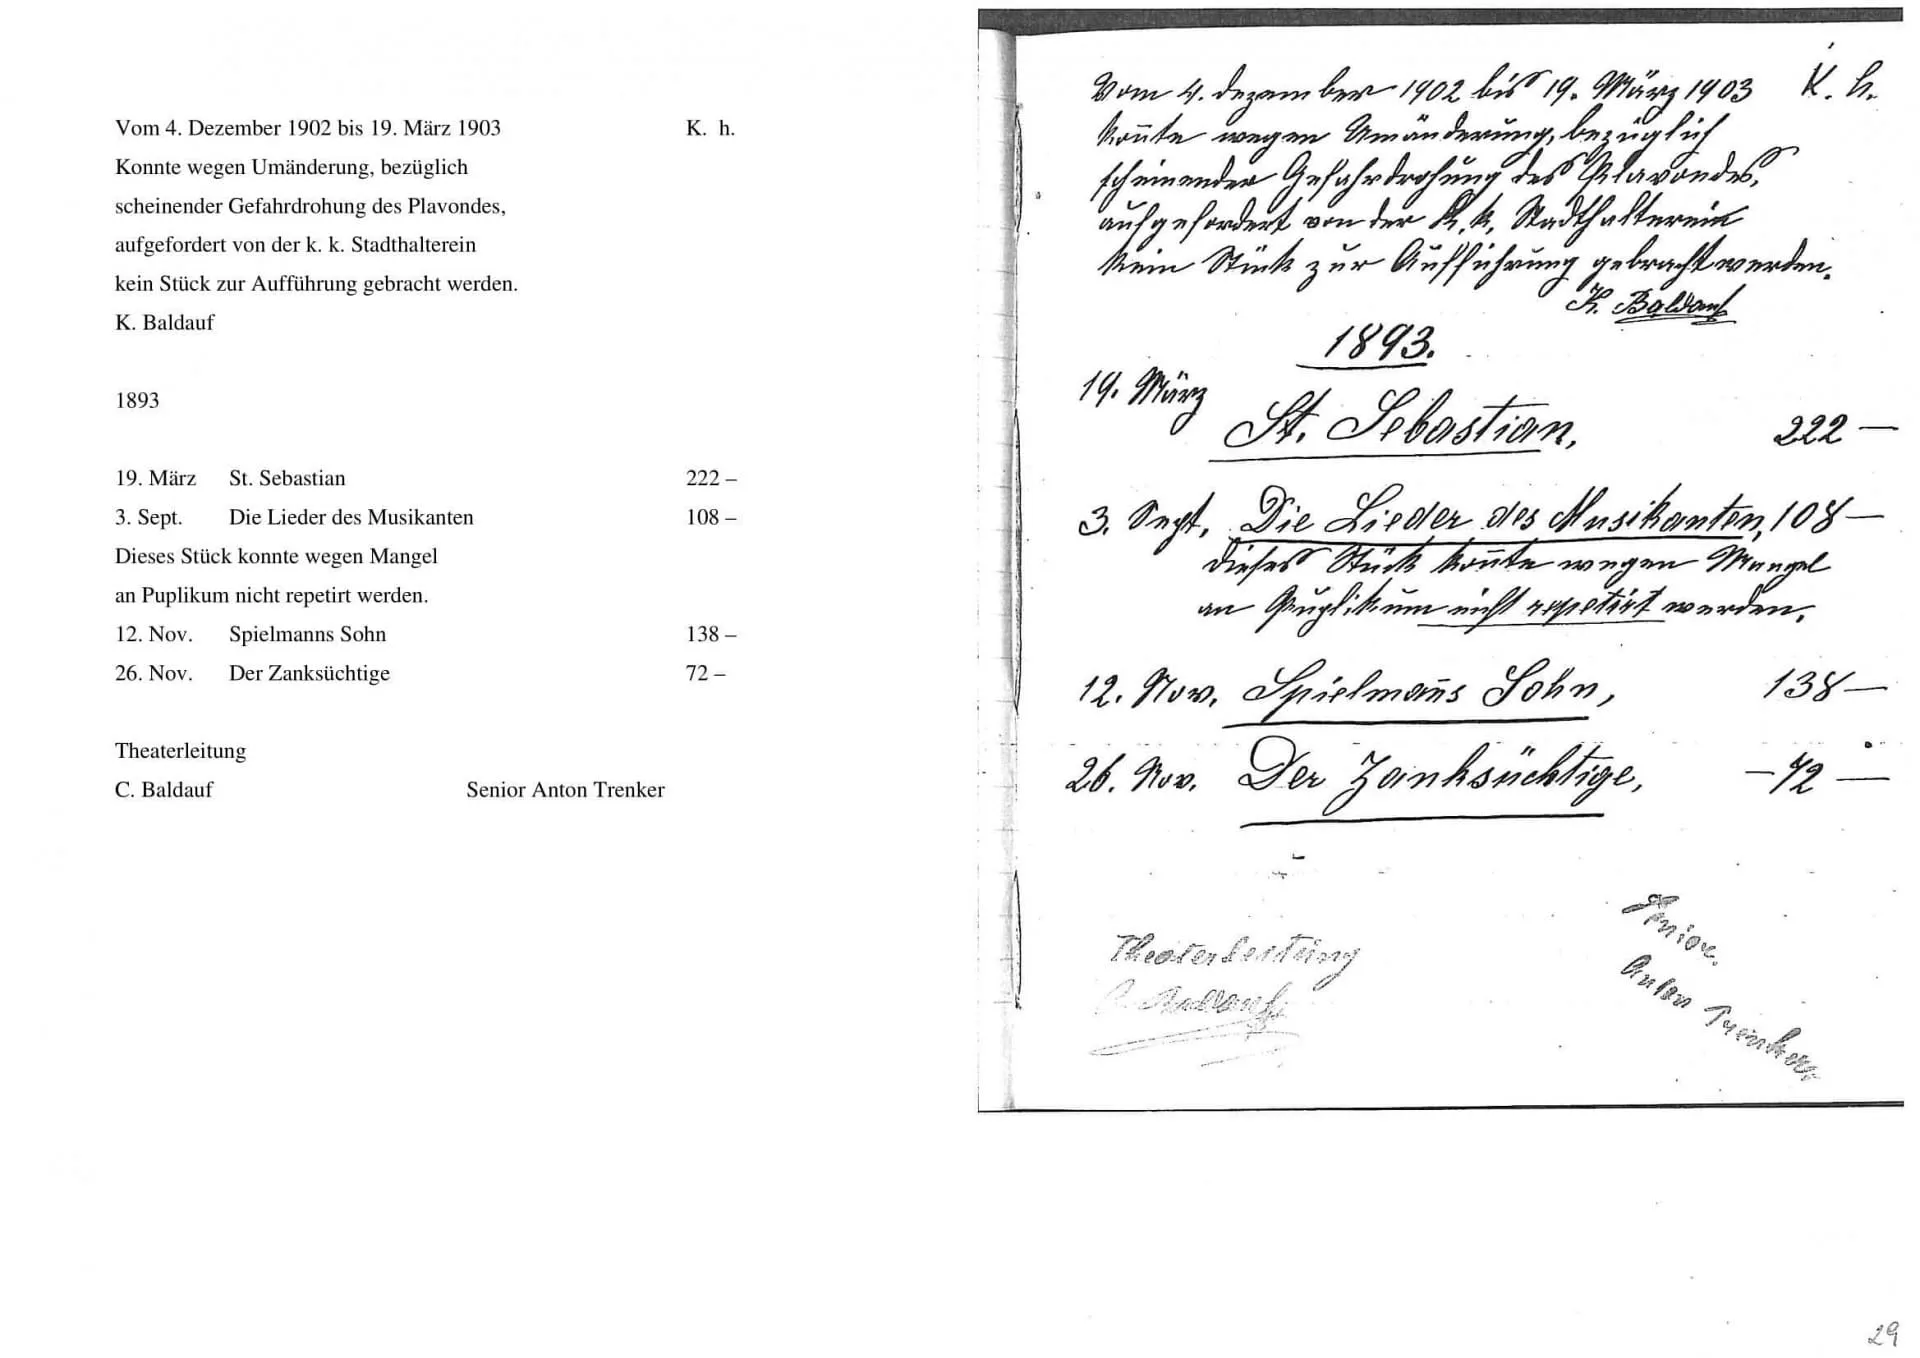 Vom 4. Dezember 1902 bis 19. März 1903 K. h.
Konnte wegen Umänderung, bezüglich
scheinender Gefahrdrohung des Plavondes,
aufgefordert von der k. k. Stadthalterein
kein Stück zur Aufführung gebracht werden.
K. Baldauf
1893
19. März St. Sebastian 222 –
3. Sept. Die Lieder des Musikanten 108 –
Dieses Stück konnte wegen Mangel
an Puplikum nicht repetirt werden.
12. Nov. Spielmanns Sohn 138 –
26. Nov. Der Zanksüchtige 72 –
Theaterleitung
C. Baldauf Senior Anton Trenker
Vom 4. Dezember 1902 bis 19. März 1903 K. h.
kon̄te wegen Umänderung, bezüglich
scheinender Gefahrdrohung des Plavondes,
aufgefordert von der k. k. Stadthalterein
kein Stück zur Aufführung gebracht werden.
K. Baldauf
1893.
19. März
St. Sebastian, 222 —
3. Sept. Die Lieder des Musikanten, 108 —
Dieses Stück kon̄te wegen Mangel
an Puplikum nicht repetirt werden.
12. Nov. Spielman̄s Sohn, 138 —
26. Nov. Der Zanksüchtige, — 72 —
Theaterleitung
C. Baldauf
Senior.
Anton Trenker
29